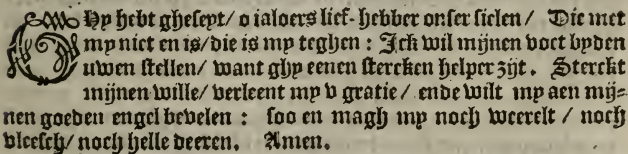 GHy hebt gheseyt/ o ialoers lief-hebber onser sielen/ Die met
my niet en is/ die is my teghen: Ick wil mijnen voet byden
uwen stellen/ want ghy eenen stercken helper zijt. Sterckt
mijnen wille/ verleent my v gratie/ ende wilt my aen mij-
nen goeden engel bevelen: soo en magh my noch weerelt/ noch
vleesch/ noch helle deeren. Amen.